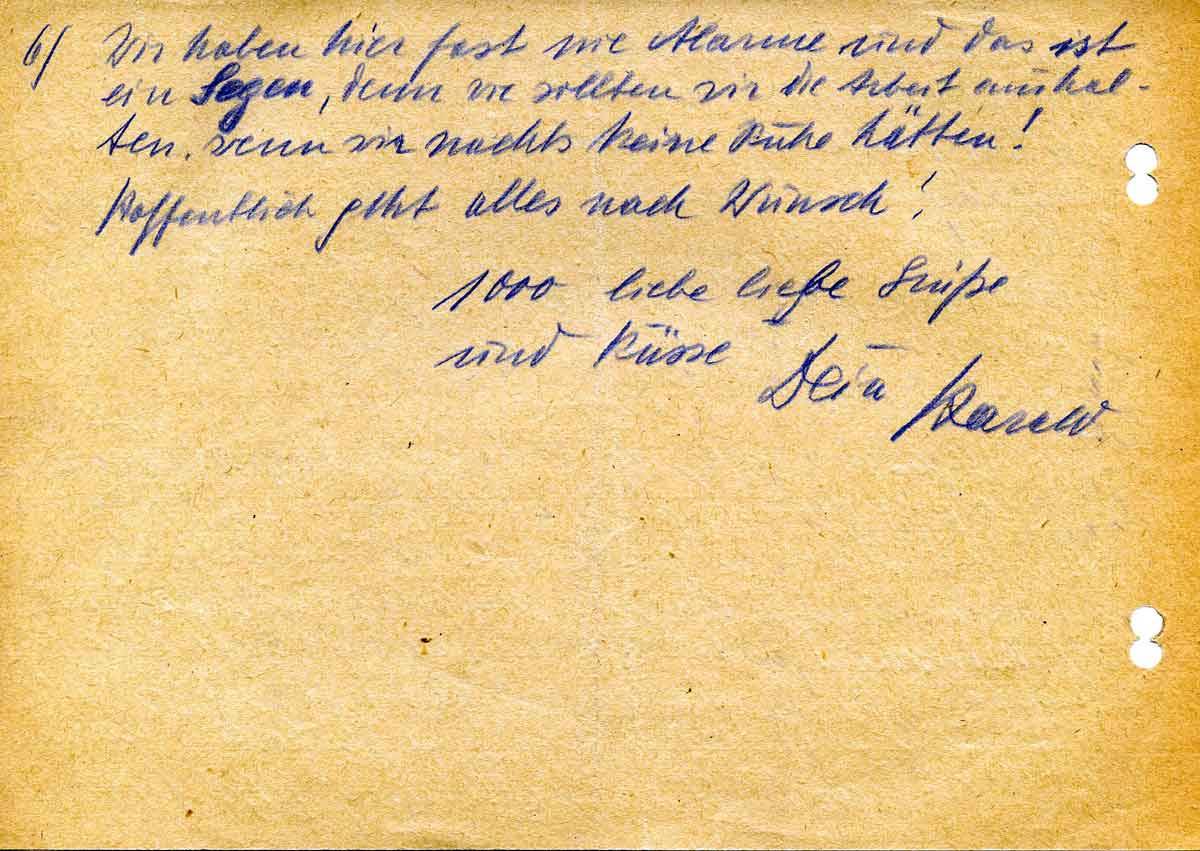 6/ Wir haben hier fast nie Alarme und das ist
ein Segen, denn wie sollten wir die Arbeit aushal-
ten, wenn wir nachts keine Ruhe hätten!
Hoffentlich geht alles nach Wunsch!
1000 liebe liebe Grüße
und Küsse Dein Harald.